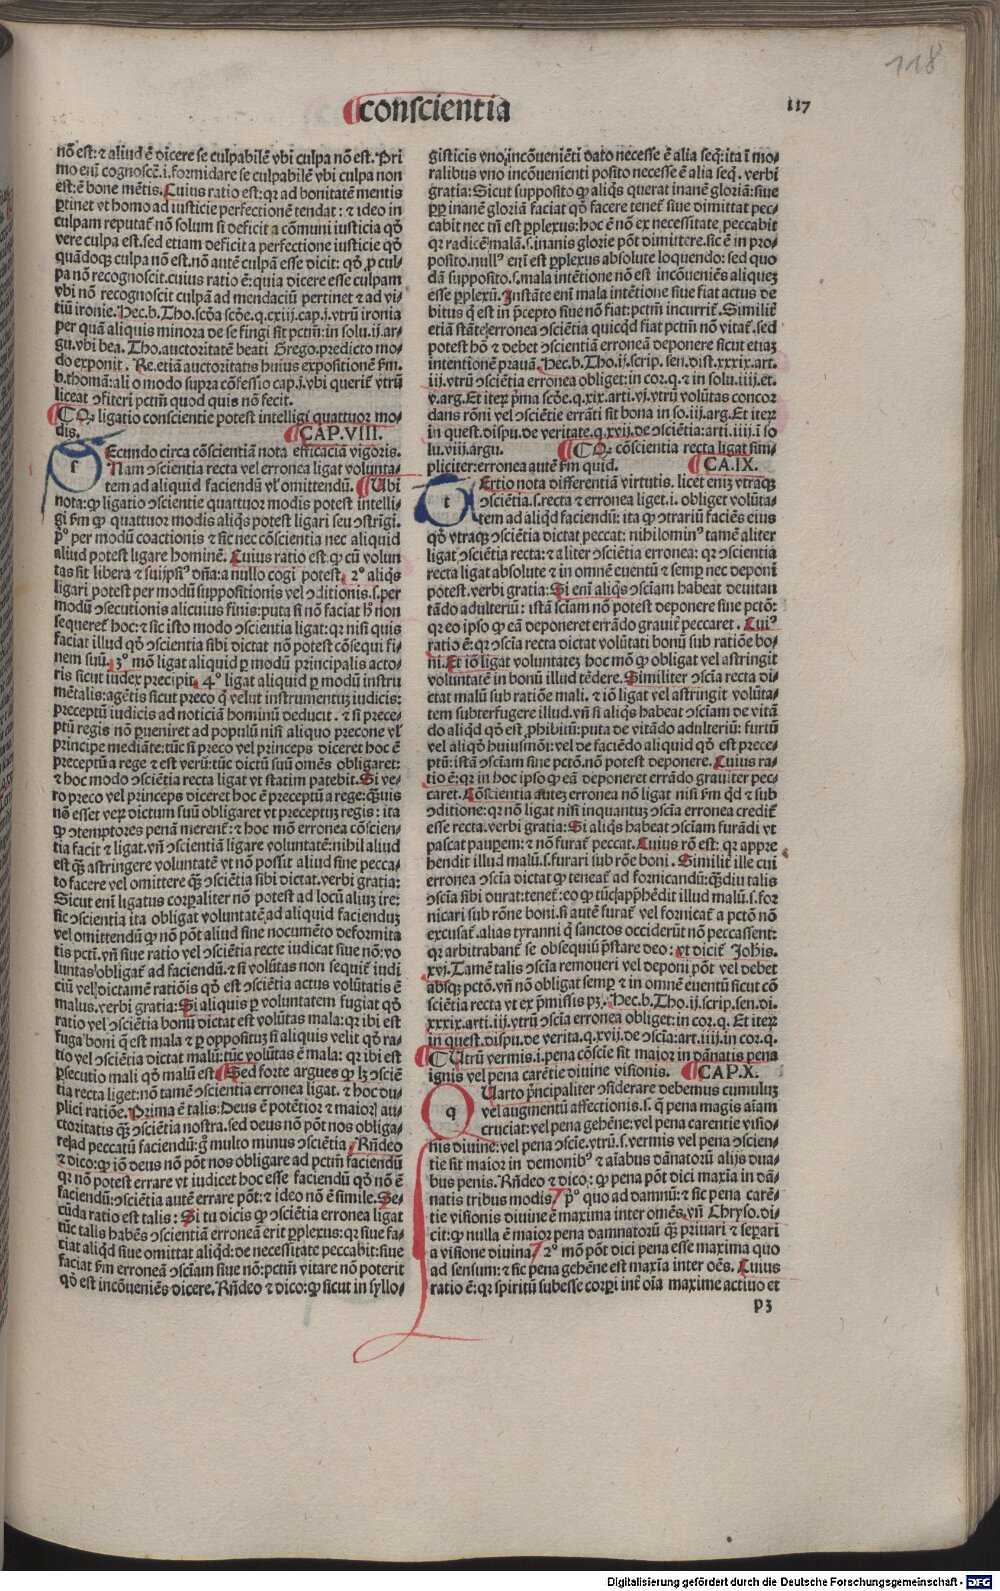 118
¶conscientia
117
nō est: ⁊ aliud ē dicere se culpabilē vbi culpa nō est. Pri
mo eni cognosce .i. formidare se culpabilē vbi culpa non
est: ē bone mētis. Cuius ratio est: qꝛ ad bonitatē mentis
ꝑtinet vt homo ad iusticie perfectionē tendat: ⁊ ideo in
culpam reputat̄ nō solum si deficit a cōmuni iusticia qđ
vere culpa est. sed etiam deficit a perfectione iusticie qđ
quādoqꝫ culpa nō est. nō autē culpā esse dicit: qđ ꝓ cul⸗
pa nō recognoscit. cuius ratio ē: quia dicere esse culpam
vbi nō recognoscit culpā ad mendaciū pertinet ⁊ ad vi⸗
tiū ironie. Hec.b.Tho.scđa scđe.q.cxiij.cap.j.vtrū ironia
per quā aliquis minora de se fingi sit pctm: in solu.ij.ar⸗
gu.vbi bea.Tho.auctoritatē beati Grego.predicto mo⸗
do exponit. Re. etiā auctoritatis huius expositionē ẜm.
b.thomā: ali o modo supra cōfessio cap.j.vbi querit̄ vtrū
liceat ↄfiteri pctm quod quis nō fecit.
¶Cꝙ ligatio conscientie potest intelligi quattuor mo⸗
dis. ¶CAP.VIII.
sEcundo circa cōscientiā nota efficaciā vigoris.
Nam ↄscientia recta vel erronea ligat volunta⸗
tem ad aliquid faciendū vl̓ omittendū. ¶Ubi
nota: ꝙ ligatio ↄscientie quattuor modis potest intelli⸗
gi ẜm ꝙ quattuor modis aliq̄s potest ligari seu ↄstrīgi.
p̄º per modū coactionis ⁊ sic nec cōscientia nec aliquid
aliud potest ligare hominē. Cuius ratio est ꝙ cū volun
tas sit libera ⁊ suijpsi⁹ dn̄a: a nullo cogi potest. 2º aliq̄s
ligari potest per modū suppositionis vel ↄditionis .s. per
modū ↄsecutionis alicuius finis: puta si nō faciat h̓ non
sequeret̄ hoc: ⁊ sic isto modo ↄscientia ligat: qꝛ nisi quis
faciat illud qđ ↄscientia sibi dictat nō potest cōsequi fi⸗
nem suū. 3º mō ligat aliquid ꝑ modū principalis acto⸗
ris sicut iudex precipit. 4º ligat aliquid ꝑ modū instru
mētalis: agētis sicut preco q̄ velut instrumentuꝫ iudicis:
preceptū iudicis ad noticiā hominū deducit. ⁊ si prece⸗
ptū regis nō ꝑueniret ad populū nisi aliquo precone vl̓
principe mediāte: tūc si preco vel princeps diceret hoc ē
preceptū a rege ⁊ est verū: tūc dictū suū omēs obligaret:
⁊ hoc modo ↄsciētia recta ligat vt statim patebit. Si ve⸗
ro preco vel princeps diceret hoc ē preceptū a rege: q̄uis
nō esset veꝝ dictum suū obligaret vt preceptuꝫ regis: ita
ꝙ ↄtemptores penā merent̄: ⁊ hoc mō erronea cōscien⸗
tia facit ⁊ ligat. vn̄ ↄscientiā ligare voluntatē: nihil aliud
est qꝫ astringere voluntatē vt nō possit aliud sine pecca⸗
to facere vel omittere qꝫ ↄsciētia sibi dictat. verbi gratia:
Sicut eni ligatus corꝑaliter nō potest ad locū aliuꝫ ire:
sic ↄscientia ita obligat voluntatē ad aliquid faciendum
vel omittendū ꝙ nō pōt aliud sine nocumēto deformita
tis pcti. vn̄ siue ratio vel ↄsciētia recte iudicat siue nō: vo
luntas obligat̄ ad faciendū. ⁊ si volūtas non sequit̄ iudi
ciū vel dictamē ratiōis qđ est ↄsciētia actus volūtatis ē
malus. verbi gratia: Si aliquis ꝑ voluntatem fugiat qđ
ratio vel ↄsciētia bonū dictat est volūtas mala: qꝛ ibi est
fuga boni q̄ est mala ⁊ ꝑ oppositus si aliquis velit qđ ra⸗
tio vel ↄsciētia dictat malū: tūc volūtas ē mala: qꝛ ibi est
ꝓsecutio mali qđ malū est. ¶Sed forte argues ꝙ lꝫ ↄsciē
tia recta liget: nō tamē ↄscientia erronea ligat. ⁊ hoc du⸗
plici ratiōe. Prima ē talis: Deus ē potētior ⁊ maior au⸗
ctoritatis qꝫ ↄsciētia nostra. sed deus nō pōt nos obliga⸗
re ad peccatū faciendū: ḡ multo minus ↄsciētia. Rn̄deo
⁊ dico: ꝙ iō deus nō pōt nos obligare ad pctm faciendū
qꝛ nō potest errare vt iudicet hoc esse faciendū qđ nō ē
faciendū: ↄsciētia autē errare pōt: ⁊ ideo nō ē simile. Se⸗
cūda ratio est talis: Si tu dicis ꝙ ↄsciētia erronea ligat
tūc talis habēs ↄscientiā erroneā erit ꝑplexus: qꝛ siue fa⸗
ciat aliqđ siue omittat aliqđ: de necessitate peccabit: siue
faciat ẜm erroneā ↄsciam siue nō: pctm vitare nō poterit
qđ est incōueniēs dicere. Rn̄deo ⁊ dico: ꝙ sicut in syllo⸗
gisticis vno incōueniēti dato necesse ē alia seq̄: ita ī mo⸗
ralibus vno incōuenienti posito necesse ē alia seq̄. verbi
gratia: Sicut supposito ꝙ aliq̄s querat inanē gloriā: siue
ꝓp̄ inanē gloriā faciat qđ facere tenet̄ siue dimittat pec⸗
cabit nec tn̄ est ꝑplexus: hoc ē nō ex necessitate peccabit
qꝛ radicē malā .s. inanis glorie pōt dimittere. sic ē in pro⸗
posito. null⁹ eni est ꝑplexus absolute loquendo: sed quo
dā supposito .s. mala intētione nō est incōueniēs aliquez
esse ꝑplexū. Instāte eni mala intētione siue fiat actus de
bitus q̄ est in p̄cepto siue nō fiat: pctm incurrit̄. Similit̄
etiā stāte erronea ↄsciētia quicqđ fiat pctm nō vitat̄. sed
potest hō ⁊ debet ↄscientiā erroneā deponere sicut etiaꝫ
intentionē prauā. Hec.b.Tho.ij.scrip.sen.dist.xxxix.art.
iij.vtrū ↄsciētia erronea obliget: in cor.q.⁊ in solu.iiij.et.
v.arg. Et iteꝝ p̄ma scđe.q.xix.arti.vj.vtrū volūtas concor
dans rōni vel ↄsciētie errāti sit bona in so.iij.arg. Et iteꝝ
in quest.dispu.de veritate.q.xvij.de ↄsciētia: arti.iiij.ī so
lu.viij.argu. ¶Cꝙ cōscientia recta ligat sim⸗
pliciter: erronea autē ẜm quid. ¶CA.IX.
tErtio nota differentiā virtutis. licet eniꝫ vtraqꝫ
ↄsciētia .s. recta ⁊ erronea liget .i. obliget volūta⸗
tem ad aliqđ faciendū: ita ꝙ ↄtrariū faciēs eius
qđ vtraqꝫ ↄsciētia dictat peccat: nihilomin⁹ tamē aliter
ligat ↄsciētia recta: ⁊ aliter ↄsciētia erronea: qꝛ ↄscientia
recta ligat absolute ⁊ in omnē euentū ⁊ semꝑ nec deponi
potest. verbi gratia: Si eni aliq̄s ↄsciam habeat deuitan
tādo adulteriū: istā sciam nō potest deponere sine pctō:
qꝛ eo ipso ꝙ eā deponeret errādo grauit̄ peccaret. Cui⁹
ratio ē: qꝛ ↄscia recta dictat volūtati bonū sub ratiōe bo⸗
ni. Et iō ligat voluntatez hoc mō ꝙ obligat vel astringit
voluntatē in bonū illud tēdere. Similiter ↄscia recta di⸗
ctat malū sub ratiōe mali. ⁊ iō ligat vel astringit volūta⸗
tem subterfugere illud. vn̄ si aliq̄s habeat ↄsciam de vitā
do aliqđ qđ est ꝓhibitū: puta de vitādo adulteriū: furtū
vel aliqđ huiusmōi: vel de faciēdo aliquid qđ est prece⸗
ptū: istā ↄsciam sine pctō. nō potest deponere. Cuius ra⸗
tio ē: qꝛ in hoc ipso ꝙ eā deponeret errādo grauiter pec⸗
caret. Cōscientia autez erronea nō ligat nisi ẜm qđ ⁊ sub
ↄditione: qꝛ nō ligat nisi inquantuꝫ ↄscia erronea credit̄
esse recta. verbi gratia: Si aliq̄s habeat ↄsciam furādi vt
pascat pauꝑem: ⁊ nō furat̄ peccat. Cuius rō est: qꝛ appre
hendit illud malū .s. furari sub rōe boni. Similit̄ ille cui
erronea ↄscia dictat ꝙ teneat̄ ad fornicandū: q̄diu talis
ↄscia sibi durat: tenet̄: eo ꝙ tūc apphēdit illud malū .s. for
nicari sub rōne boni. si autē furat̄ vel fornicat̄ a pctō nō
excusat̄. alias tyranni q̄ sanctos occiderūt nō peccassent:
qꝛ arbitrabant̄ se obsequiū p̄stare deo: vt dicit̄ Johis.
xvj. Tamē talis ↄscia remoueri vel deponi pōt vel debet
absqꝫ pctō. vn̄ nō obligat semꝑ ⁊ in omnē euentū sicut cō
sciētia recta vt ex p̄missis pꝫ. Hec.b.Tho.ij.scrip.sen.di.
xxxix.arti.iij.vtrū ↄscia erronea obliget: in cor.q. Et iteꝝ
in quest.dispu.de verita.q.xvij.de ↄscia: art.iiij.in cor.q.
¶CUtrū vermis .i. pena cōscie sit maior in dānatis pena
ignis vel pena carētie diuine visionis. ¶CAP.X.
qUarto p̄ncipaliter ↄsiderare debemus cumuluꝫ
vel augmentū affectionis .s. q̄ pena magis aīam
cruciat: vel pena gehēne: vel pena carentie visio⸗
nis diuine: vel pena ↄscie. vtrū .s. vermis vel pena ↄscien⸗
tie sit maior in demonib⁹ ⁊ aīabus dānatorū alijs dua⸗
bus penis. Rn̄deo ⁊ dico: ꝙ pena pōt dici maxīa in dā⸗
natis tribus modis. p̄º quo ad damnū: ⁊ sic pena carē⸗
tie visionis diuine ē maxima inter omēs. vn̄ Chryso. di⸗
cit: ꝙ nulla ē maior pena damnatorū q̄ priuari ⁊ separi
a visione diuina. 2º mō pōt dici pena esse maxima quo
ad sensum: ⁊ sic pena gehēne est maxīa inter oēs. Cuius
ratio ē: qꝛ spiritū subesse corꝑi int̄ oīa maxime actiuo et
p3
Digitalisierung gefördert durch die Deutsche Forschungsgemeinschaft - DFG